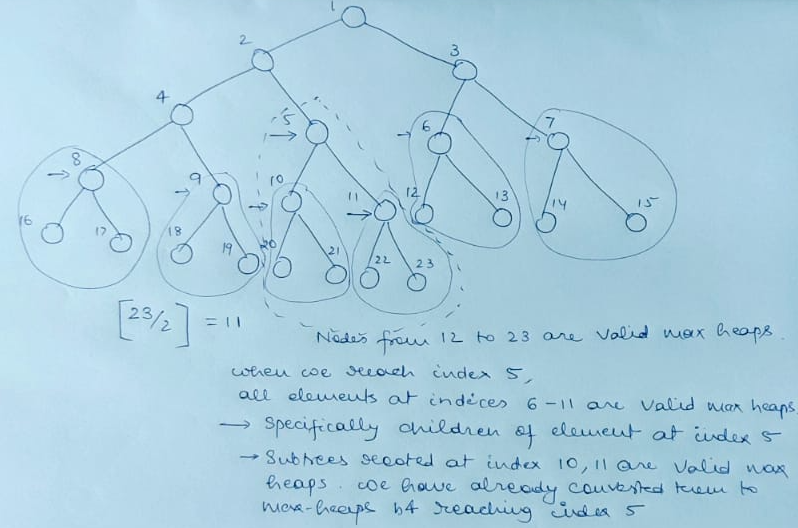 1
2
3
4
5
6
7
8
9
10
11
12
13
14
15
16
17
18
19
20
21
22
23
[23/2] = 11
Nodes from 12 to 23 are valid max heaps.
when we reach index 5,
all elements at indices 6-11 are valid max heaps
→ Specifically children of element at index 5
→ Subtrees rooted at index 10, 11 are valid max
heaps. we have already converted them to
max-heaps b4 reaching index 5